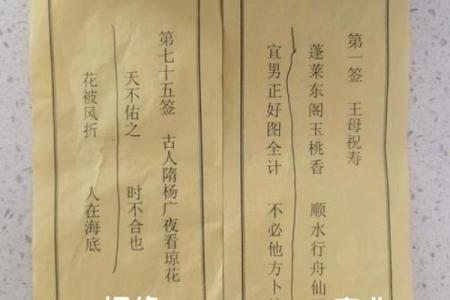 第一签 王母祝寿
蓬莱东阁玉桃香 顺水行舟仙
宜男正好图全计 不必他方卜
第七十五签 古人隋杨广夜看琼花
天不佑之 时不合也
花被风折 人在海底